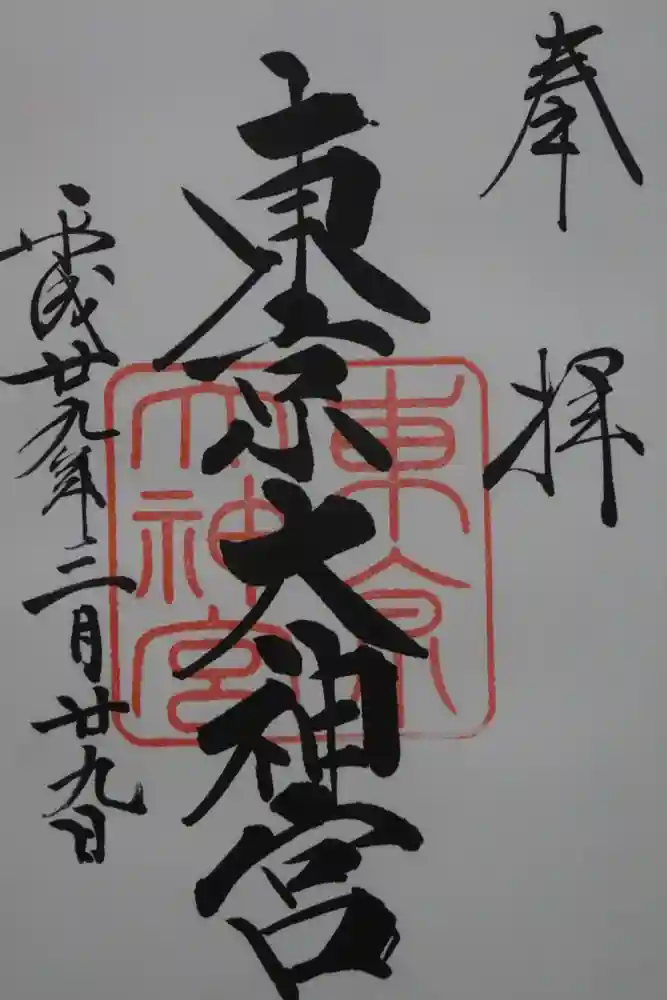 奉拝
東京大神宮
東京大神宮
平成廿九年三月廿九日